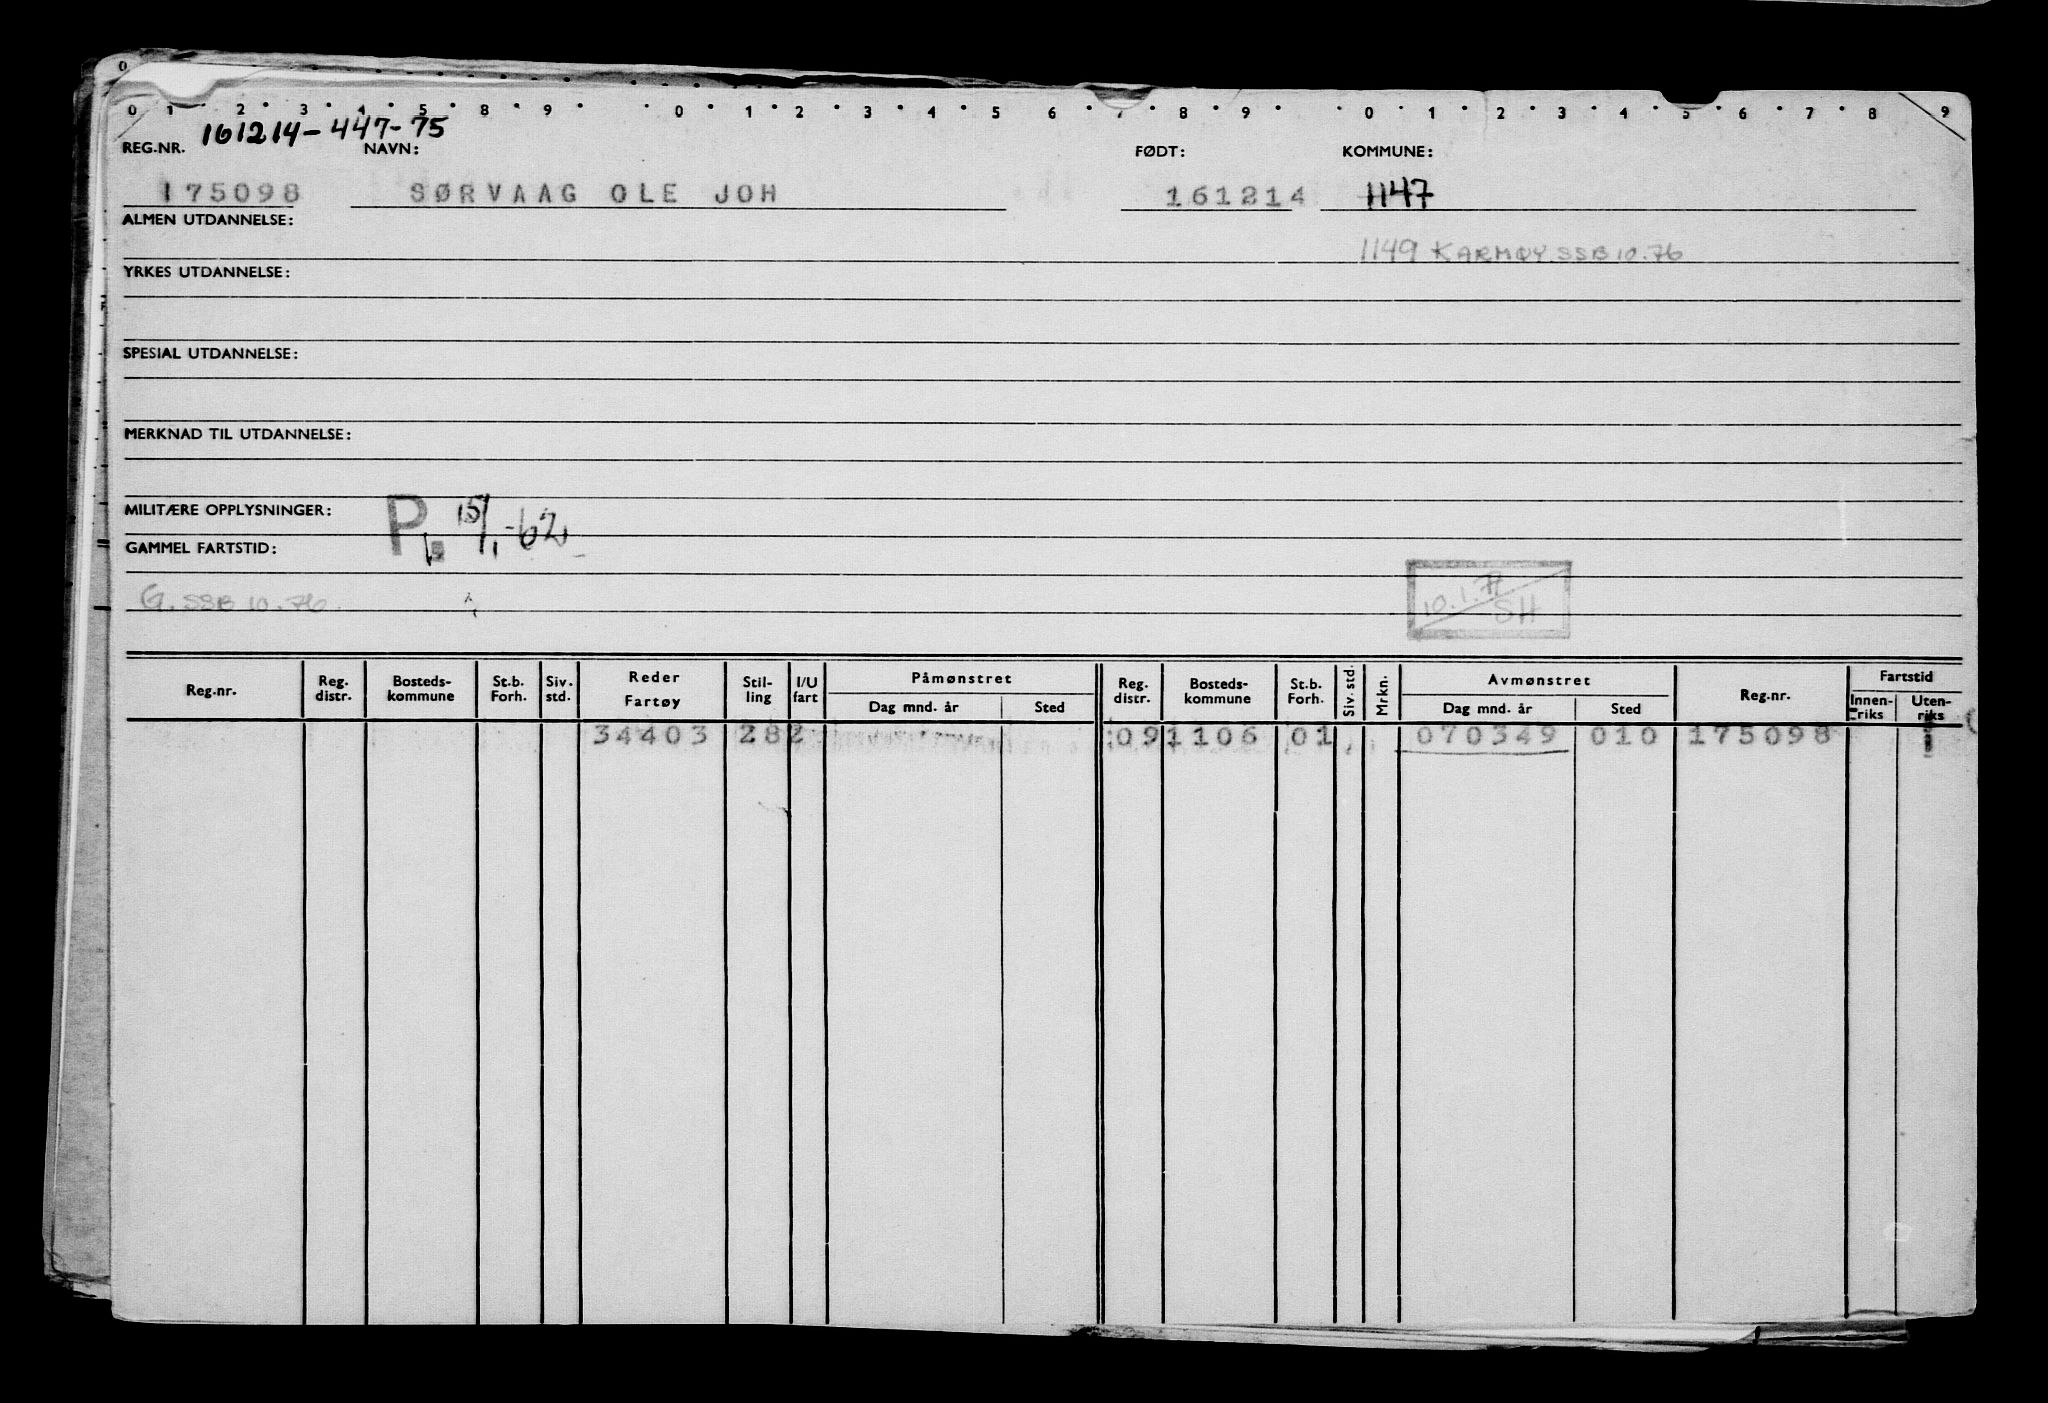 0
0 1 2 3 4 5 8 9 0 1 2 3 4 5 6 7 8 9 0 1 2 3 4 5 6 7 8 9
161214-447-75
REG.NR. NAVN: FØDT: KOMMUNE:
175098 SØRVAAG OLE JOH 161214 1147
ALMEN UTDANNELSE:
1149 KARMØY SSB 10.76
YRKES UTDANNELSE:
SPESIAL UTDANNELSE:
MERKNAD TIL UTDANNELSE:
MILITÆRE OPPLYSNINGER: P. 15/1-62
GAMMEL FARTSTID:
G. SSB 10.76 10.1.77 SH
Reg.nr. Reg. distr. Bosteds-kommune St.b. Forh. Siv. std. Reder Fartøy Stil-ling I/U fart Påmønstret Dag mnd. år Sted Reg. distr. Bosteds-kommune St.b. Forh. Siv. std. Mrkn. Avmønstret Dag mnd. år Sted Reg.nr. Fartstid Innen-riks Uten-riks
34403 282 091106 01 070349 010 175098